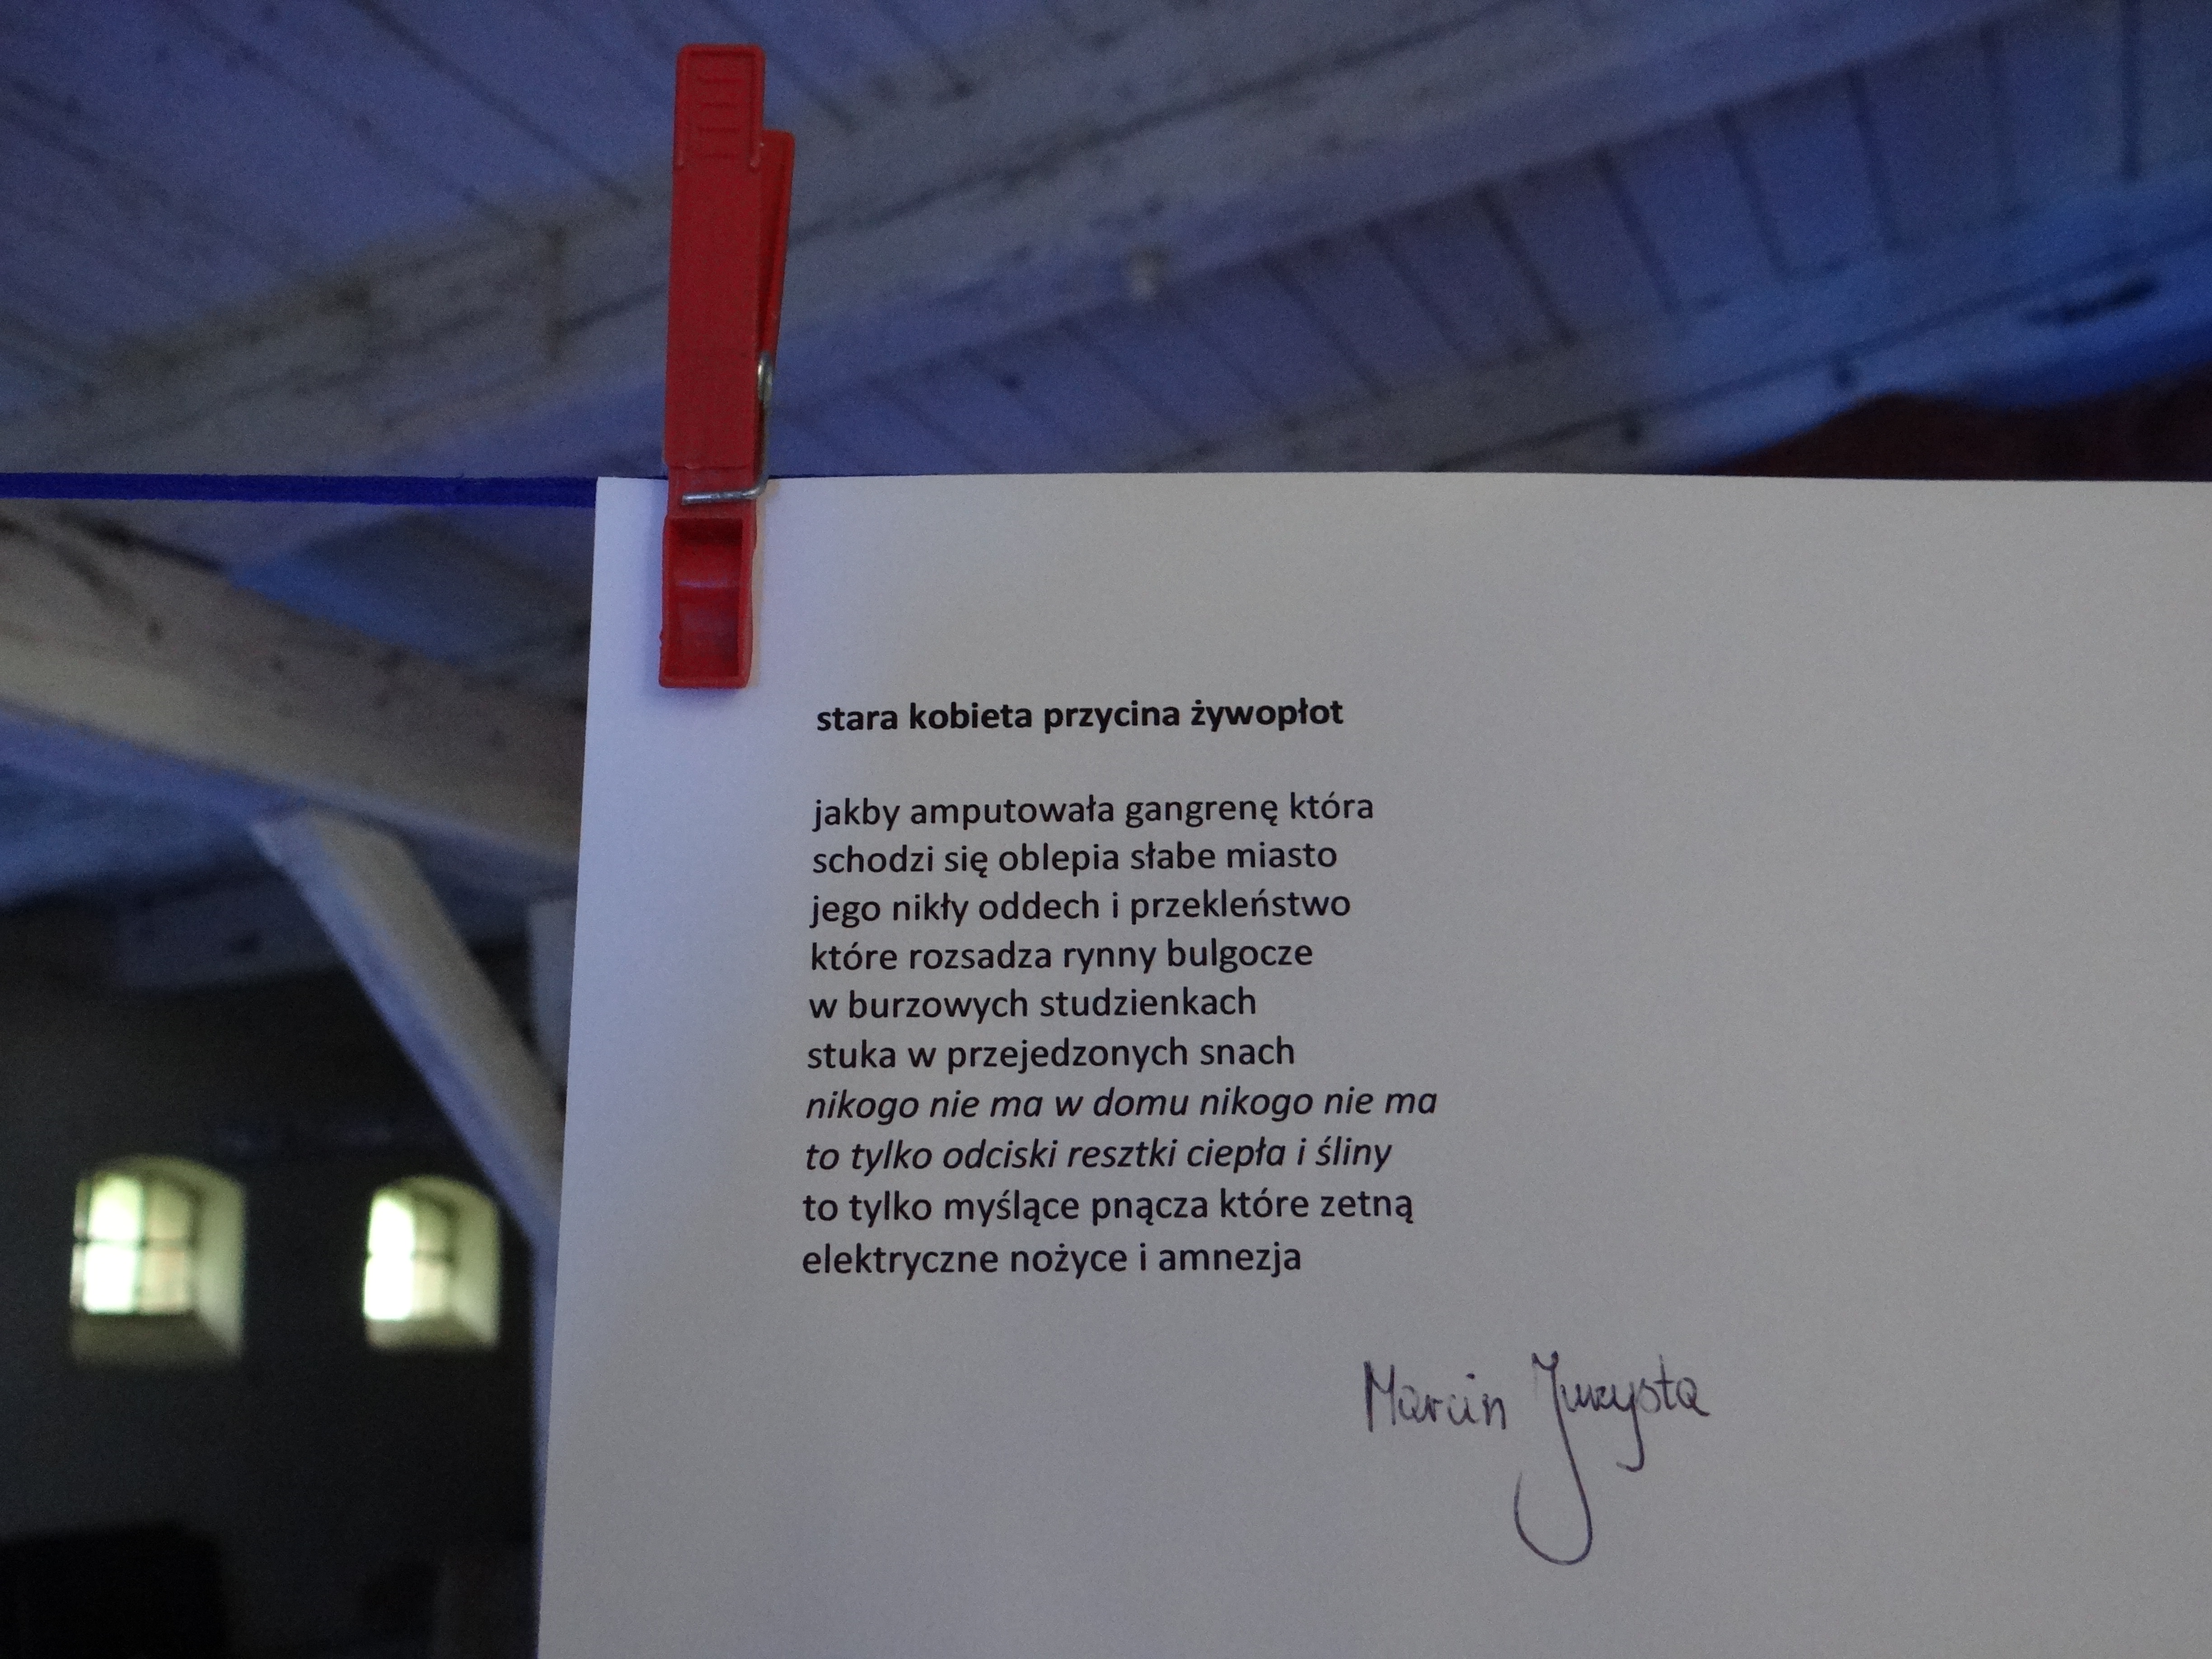 stara kobieta przycina żywopłot
jakby amputowała gangrenę która
schodzi się oblepia słabe miasto
jego nikły oddech i przekleństwo
które rozsadza rynny bulgocze
w burzowych studzienkach
stuka w przejedzonych snach
nikogo nie ma w domu nikogo nie ma
to tylko odciski resztki ciepła i śliny
to tylko myślące pnącza które zetną
elektryczne nożyce i amnezja
Marcin Jurzysta